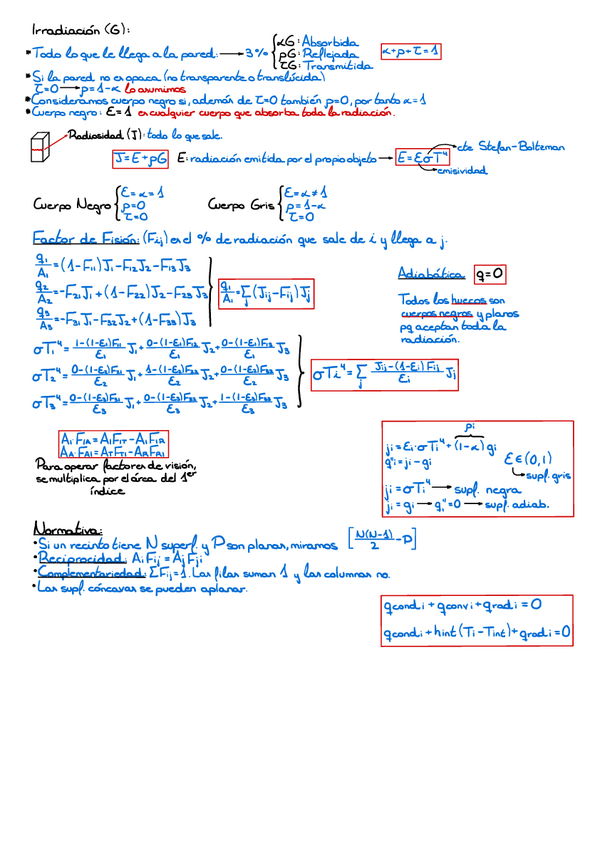 Irradiación (G):
• Todo lo que le llega a la pared. → 3% { αG: Absorbida
ρG: Reflejada
τG: Transmitida
α+ρ+τ=1
• Si la pared no es opaca (no transparente o translúcida)
τ=0 → ρ=1-α lo asumimos
• Consideramos cuerpo negro si, además de τ=0 también ρ=0, por tanto α=1
• Cuerpo negro: E=1 es cualquier cuerpo que absorba toda la radiación.
Radiosidad (J): todo lo que sale.
J=E+ρG E: radiación emitida por el propio objeto → E=ƐσT⁴ cte Stefan-Boltzman
emisividad
Cuerpo Negro { Ɛ=α=1
ρ=0
τ=0
Cuerpo Gris { Ɛ=α≠1
ρ=1-α
τ=0
Factor de Fisión: (Fij) es el % de radiación que sale de i y llega a j.
q₁/A₁=(1-F₁₁)J₁-F₁₂J₂-F₁₃J₃
q₂/A₂=-F₂₁J₁+(1-F₂₂)J₂-F₂₃J₃
q₃/A₃=-F₃₁J₁-F₃₂J₂+(1-F₃₃)J₃
qi/Ai=∑j(Jij-Fij)Jj
Adiabática q=0
Todos los huecos son
cuerpos negros y planos
pq aceptan toda la
radiación.
σT₁⁴=1-(1-Ɛ₁)F₁₁/Ɛ₁ J₁+0-(1-Ɛ₁)F₁₂/Ɛ₁ J₂+0-(1-Ɛ₁)F₁₃/Ɛ₁ J₃
σT₂⁴=0-(1-Ɛ₂)F₂₁/Ɛ₂ J₁+1-(1-Ɛ₂)F₂₂/Ɛ₂ J₂+0-(1-Ɛ₂)F₂₃/Ɛ₂ J₃
σT₃⁴=0-(1-Ɛ₃)F₃₁/Ɛ₃ J₁+0-(1-Ɛ₃)F₃₂/Ɛ₃ J₂+1-(1-Ɛ₃)F₃₃/Ɛ₃ J₃
σTi⁴=∑j Jij-(1-Ɛi)Fij/Ɛi Jj
A₁F₁A=A₁F₁T-A₁F₁R
AAFA₁=ATFT₁-ARFR₁
Para operar factores de visión,
se multiplica por el área del 1er
índice
ρi
ji=Ɛi·σTi⁴+(1-α)gi
q''i=ji-gi
Ɛ∈(0,1)
supf. gris
ji=σTi⁴ → supf. negra
ji=gi → qi''=0 → supf. adiab.
Normativa:
• Si un recinto tiene N superf. y P son planas, miramos [N(N-1)/2-P]
• Reciprocidad: AiFij=AjFji
• Complementariedad: ∑Fij=1. Las filas suman 1 y las columnas no.
• Las supf. cóncavas se pueden aplanar.
qcondi+qconvi+qradi=0
qcondi+hint(Ti-Tint)+qradi=0